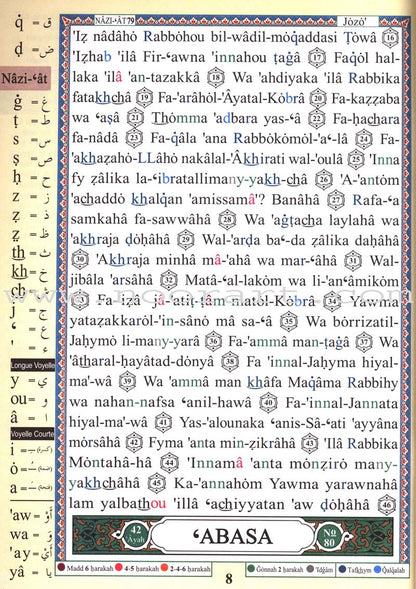 NÂZI-‘ÂT 79
Jozo’
'Iẓ nâdâhȯ Rabbȯhou bil-wâdil-mȯqaddasi Ṭȯwâ 16
'Iẓhab 'ilâ Fir-‘awna 'innahou ṭagâ 17 Faqȯl hal-
laka 'ilâ 'an-tazakkâ 18 Wa 'ahdiyaka 'ilâ Rabbika
fatakhchâ 19 Fa-'arâhȯl-'Âyatal-Kȯbrâ 20 Fa-kazzaba
wa ‘aṣâ 21 Thȯmma 'adbara yas-‘â 22 Fa-ḥachara
fa-nâdâ 23 Fa-qâla 'ana Rabbȯkȯmȯl-'a‘-lâ 24 Fa-
'akhaẓahȯ-LLâhȯ nakâlal-'Âkhirati wal-'oulâ 25 'Inna
fy ẓâlika la-‘ibratallimany-yakh-châ 26 'A-'antȯm
'achaddȯ khalqan 'amissamâ'? Banâhâ 27 Rafa-‘a
samkahâ fa-sawwâhâ 28 Wa 'agṭacha laylahâ wa
'akhraja ḍȯḥâhâ 29 Wal-'arḍa ba‘-da ẓâlika daḥâhâ
30 'Akhraja minhâ mâ-'ahâ wa mar-‘âhâ 31 Wal-
jibâla 'arsâhâ 32 Matâ-‘al-lakȯm wa li-an‘âmikȯm
33 Fa-'iẓâ jâ-'atiṭ-ṭâm matol-Kȯbrâ 34 Yawma
yataẓakkarȯl-'in-sânȯ mâ sa-‘â 35 Wa bȯrrizatil-
Jaḥymȯ li-many-yarâ 36 Fa-'ammâ man-ṭagâ 37 Wa
'âtharal-ḥayâtad-dȯnyâ 38 Fa 'innal-Jaḥyma hiyal-
ma'-wâ 39 Wa 'ammâ man khâfa Maqâma Rabbihy
wa nahan-nafsa ‘anil-hawâ 40 Fa-'innal-Jannata
hiyal-ma'-wâ 41 Yas-'alounaka ‘anis-Sâ-‘ati 'ayyâna
mȯrsâhâ 42 Fyma 'anta min-ẓikrâhâ 43 'Ilâ Rabbika
Mȯntahâ-hâ 44 'Innamâ 'anta mȯnẓirȯ many-
yakhchâhâ 45 Ka-'annahȯm Yawma yarawnahâ
lam yalbathou 'illâ ‘achiyyatan 'aw ḍȯḥâhâ 46
42 'Âyah ‘ABASA No 80
Madd 6 ḥarakah 4-5 ḥarakah 2-4-6 ḥarakah Gȯnnah 2 ḥarakah 'Idgâm Tafkhym Qalqalah
8
q̇ = ق
ḍ = ض
Nâzi-‘ât
ġ = غ
ṭ = ط
s = س
ṣ = ص
ḥ = ح
z = ز
ẓ = ذ
th = ث
kh = خ
ch = ش
j = ج
‘ = ع
' = ء
Longue Voyelle
y = ي
ou = و
â = ا
Voyelle Courte
i = (كسرة)
ȯ = (ضمة)
a = (فتحة)
'aw = أَوْ
wa = وَ
'ay = أَيْ
yâ = يا